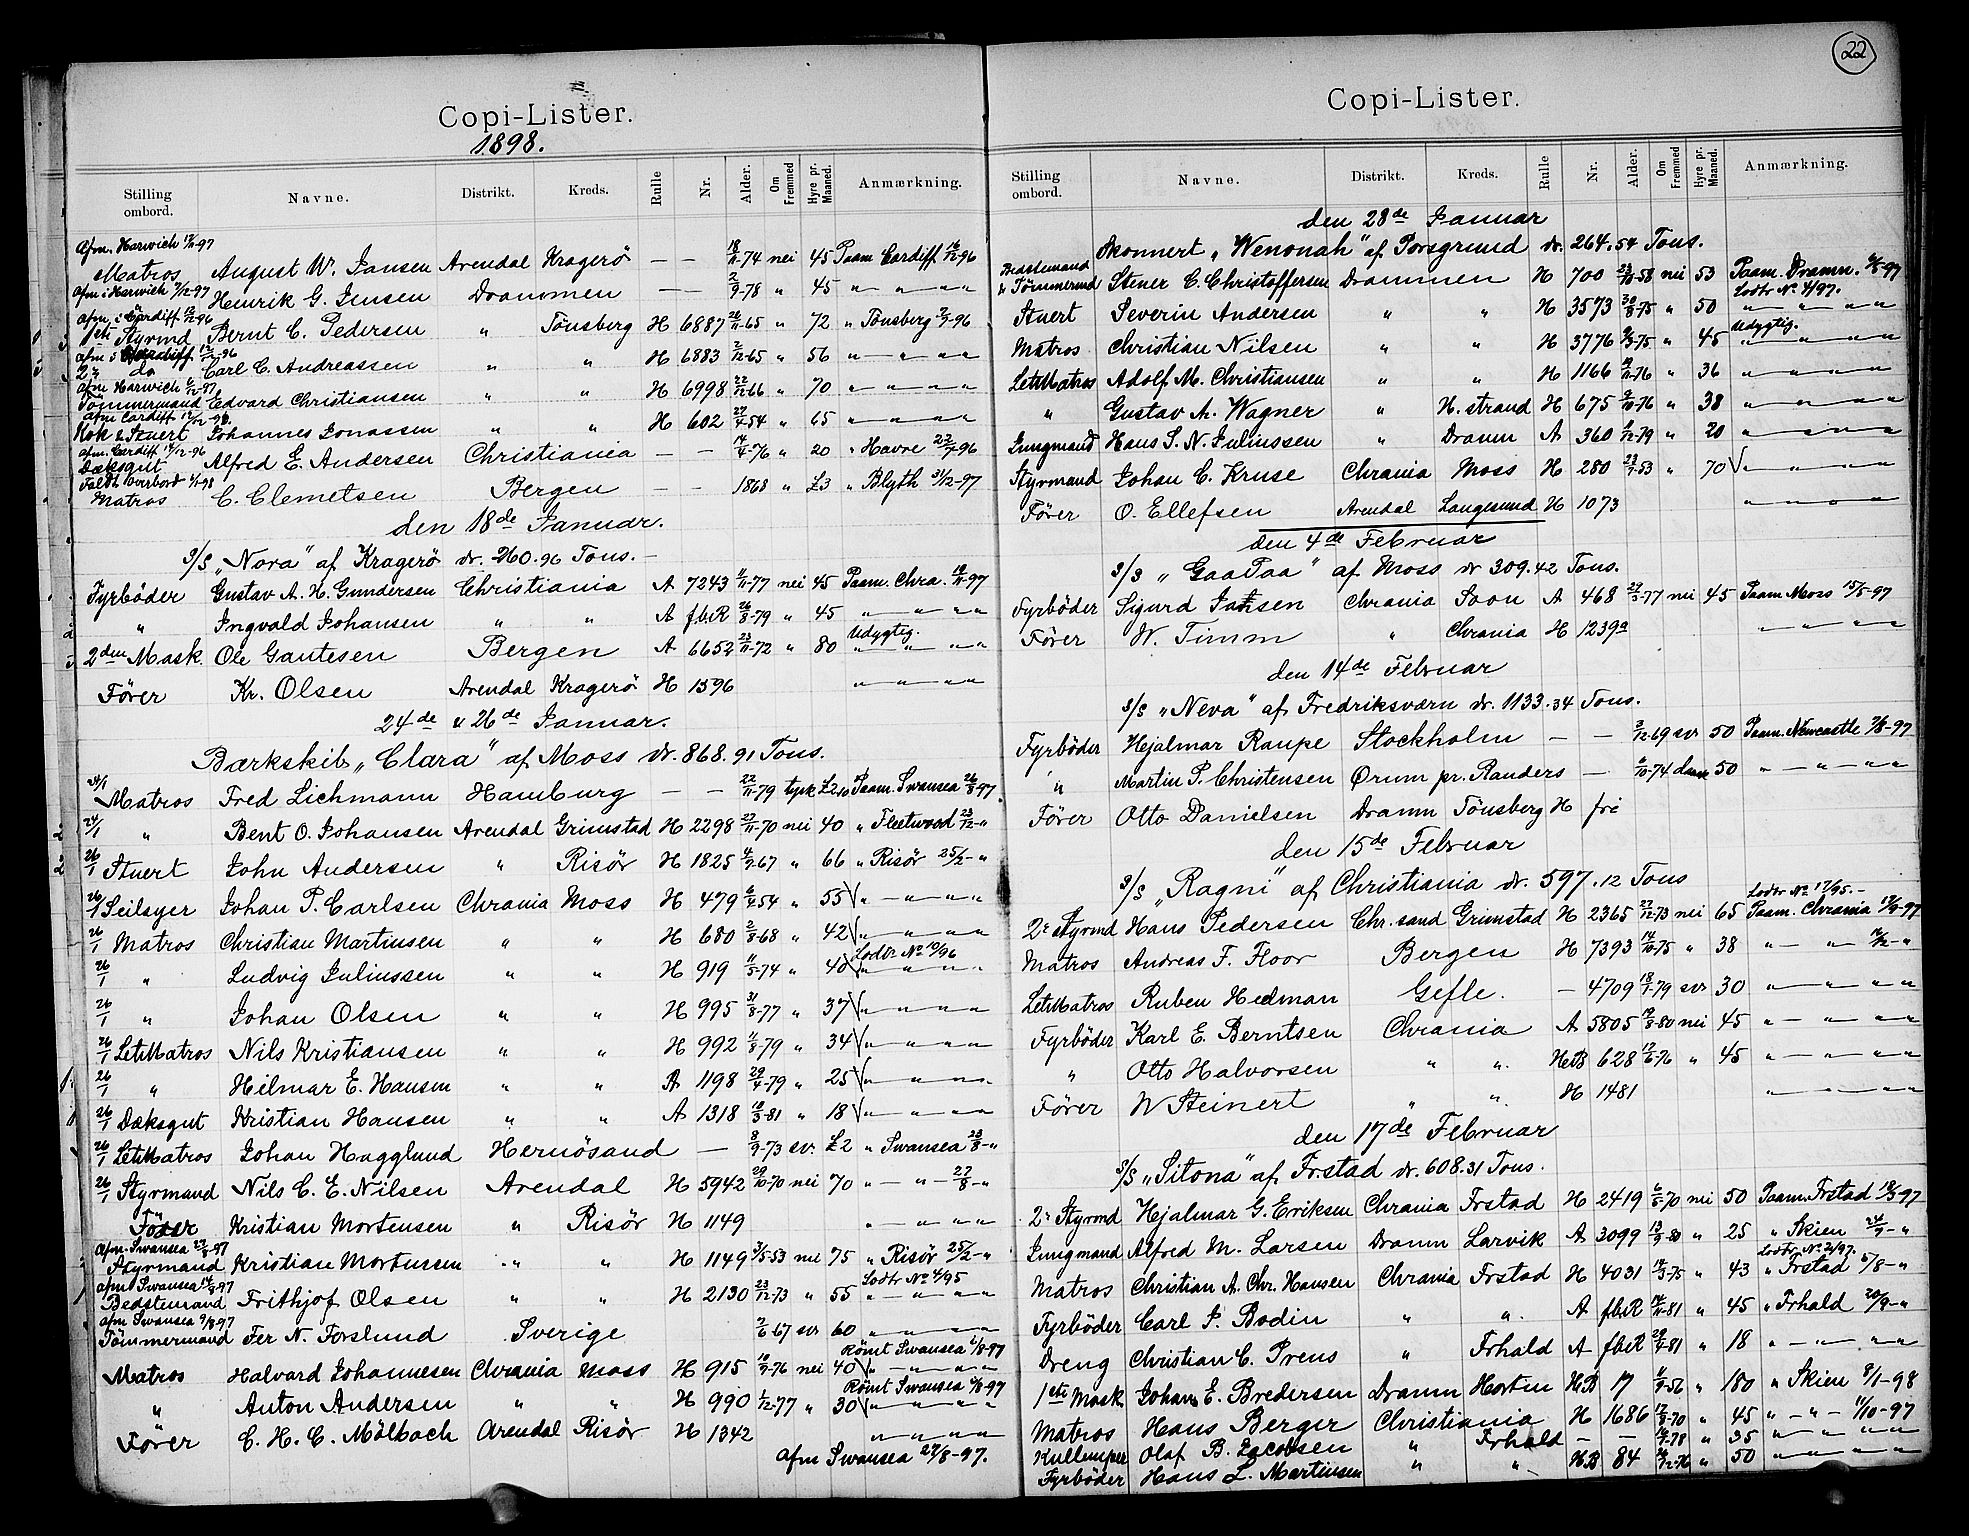 Copi-Lister.
1898.
Stilling ombord. Navne. Distrikt. Kreds. Rulle Nr. Alder. Om Fremmed Hyre pr. Maaned. Anmærkning.
Afm. Harwich 17/11-97
Matros August W. Jansen Arendal Kragerö — — 18/11-74 nei 45 Paam Cardiff 16/12-96
Afm i Harwich 7/12-97 Henrik G. Jensen Drammen — — 2/9-78 „ 45 „ „ „ „
Afm. i Cardiff 12/12-96
1ste Styrmd Bernt C. Pedersen „ Tönsberg H 6887 26/11-65 „ 72 „ Tönsberg 2/7-96
Afm i Cardiff 12/12-96
2n do Carl C. Andreassen „ „ H 6883 2/12-65 „ 56 „ — „ — „ „
Afm Harwich 6/12-97
Tömmermand Edvard Christiansen „ „ H 6998 22/12-66 „ 70 „ — „ — „ „
Afm Cardiff 12/12-96
Kok & Stuert Johannes Jonassen „ „ H 602 27/4-54 „ 65 „ — „ — „ „
Afm. Cardiff 14/12-96
Dæksgut Alfred E. Andersen Christiania — — 14/4-76 „ 20 „ Havre 22/7-96
Faldt Overbord 1/1-98
Matros C. Clemetsen Bergen — — 1868 „ £3 „ Blyth 31/12-97
den 18de Januar.
S/S „Nora" af Kragerö dr. 260.96 Tons.
Fyrböder Gustav A. H. Gundersen Christiania A 7243 11/11-77 nei 45 Paam. Chra. 19/11-97
„ Ingvald Johansen „ „ A fbiR 26/8-79 „ 45 „ — „ — „ „
Udygtig.
2den Mask. Ole Gautesen Bergen A 6652 23/11-72 „ 80 „ „ „ „
Förer Kr. Olsen Arendal Kragerö H 1596 „ — „ — „ „
24de & 26de Januar.
Barkskib „Clara" af Moss dr. 868.91 Tons.
24/1 Matros Fred Lichmann Hamburg — — 22/11-79 tysk £2.10 Paam. Swansea 26/8-97
24/1 „ Bent O. Johansen Arendal Grimstad H 2298 27/11-70 nei 40 „ Fleetwood 23/12-„
26/1 Stuert John Andersen „ Risör H 1825 4/9-67 „ 66 „ Risör 25/2-„
26/1 Seilsyer Johan P. Carlsen Chrania Moss H 479 6/4-54 „ 55 „ — „ — „ „
26/1 Matros Christian Martinsen „ „ H 680 2/8-68 „ 42 „ — „ — „ „
Lodtr No 10/96
26/1 „ Ludvig Juliussen „ „ H 919 11/5-74 „ 40 „ — „ — „ „
26/1 „ Johan Olsen „ „ H 995 31/8-77 „ 37 „ — „ — „ „
26/1 LetMatros Nils Kristiansen „ „ H 992 11/8-79 „ 34 „ — „ — „ „
26/1 „ Hilmar E. Hansen „ „ A 1198 29/4-79 „ 25 „ — „ — „ „
26/1 Dæksgut Kristian Hansen „ „ A 1318 18/3-81 „ 18 „ — „ — „ „
26/1 LetMatros Johan Hagglund Hernösand — 8/9-73 sv. £2 „ Swansea 23/8-„
26/1 Styrmand Nils C. E. Nilsen Arendal H 5942 29/10-70 nei 70 „ — „ — 27/8-„
Förer Kristian Mortensen „ Risör H 1149 „ — „ — „ „
Afm. Swansea 27/8-97
Styrmand Kristian Mortensen „ „ H 1149 3/5-53 nei 75 „ Risör 25/2-„
Afm Swansea 14/8-97 Lodtr No 4/95
Bedstemand Frithjof Olsen „ „ H 2130 23/12-73 „ 55 „ — „ — „ „
Afm Swansea 9/8-97
Tömmermand Fer N. Forslund Sverige 2/6-67 svr 60 „ — „ — „ „
Römt Swansea 6/8-97
Matros Halvard Johannesen Chrania Moss H 915 10/9-76 nei 40 „ — „ — „ „
Römt Swansea 6/8-97
„ Anton Andersen „ „ H 990 1/12-77 „ 30 „ — „ — „ „
Förer C. H. C. Mölbach Arendal Risör H 1342 „ — „ — „ „
Afm Swansea 27/8-97.
22
Copi-Lister.
Stilling ombord. Navne. Distrikt. Kreds. Rulle Nr. Alder. Om Fremmed Hyre pr. Maaned. Anmærkning.
den 28de Januar
Skonnert „Wenonah" af Porsgrund dr. 264.54 Tons.
Bedstemand
& Tömmermd Stener C. Christoffersen Drammen H 700 23/10-58 nei 53 Paam. Dramn. 3/5-97
Lodtr No 4/97.
Stuert Severin Andersen „ „ H 3573 30/8-75 „ 50 „ „ „ „
Udygtig.
Matros Christian Nilsen „ „ H 3776 9/3-75 „ 45 „ — „ — „ „
LetMatros Adolf M. Christiansen „ „ H 1166 19/11-76 „ 36 „ — „ — „ „
„ Gustav A. Wagner „ H. strand H 675 2/10-76 „ 38 „ — „ — „ „
Jungmand Hans S. N. Juliussen „ Dramn A 360 6/12-79 „ 20 „ — „ — „ „
Styrmand Johan C. Kruse Chrania Moss H 280 23/7-53 „ 70 „ — „ — „ „
Förer O. Ellefsen Arendal Langesund H 1073 „ — „ — „ „
den 4de Februar
S/S „GaaPaa" af Moss dr 309.42 Tons.
Fyrböder Sigurd Jansen Chrania Soon A 468 29/3-77 nei 45 Paam Moss 15/5-97
Förer W. Timm „ Chrania H 1239a „ — „ — „ „
den 14de Februar
S/S „Neva" af Fredriksværn dr. 1133.34 Tons.
Fyrböder Hjalmar Raupe Stockholm — — 3/12-69 svr 50 Paam. Newcastle 7/8-97
„ Martin P. Christensen Ørum pr. Randers — 6/10-74 dansk 50 „ — „ — „ „
Förer Otto Danielsen Dramn Tönsberg H fri
den 15de Februar
S/S „Ragni" af Christiania dr. 597.12 Tons
Lodtr No 17/95.-
2n Styrmd Hans Pedersen Chr.sand Grimstad H 2365 27/12-73 nei 65 Paam. Chrania 13/9-97
Matros Andreas F. Floor Bergen H 7393 14/10-75 „ 38 „ — „ — 16/12-„
LetMatros Ruben Hedman Gefle. — 4709 18/1-79 svr 30 „ — „ — „ „
Fyrböder Karl E. Berntsen Chrania A 5805 19/8-80 nei 45 „ — „ — „ „
„ Otto Halvorsen „ „ HB 628 12/6-76 „ 45 „ — „ — „ „
Förer W Steinert „ „ H 1481 „ — „ — „ „
den 17de Februar
S/S „Sitona" af Frstad dr. 608.31 Tons.
2n Styrmd Hjalmar G. Eriksen Chrania Frstad H 2419 6/5-70 nei 50 Paam. Frstad 18/5-97
Jungmand Alfred M. Larsen Dramn Larvik A 3099 13/9-80 „ 25 „ Skien 24/9-„
Lodtr. No 2/97.
Matros Christian A. Chr. Hansen Chrania Frstad H 4031 19/3-75 „ 43 „ Frstad 5/8-„
Fyrböder Carl J. Bodin „ „ A fbiR 14/11-81 „ 45 „ Frhald 20/9-„
Dreng Christian C. Prens „ Frhald A fbiR 29/4-81 „ 18 „ — „ — „ „
1ste Mask Johan E. Bredersen Dramn Horten HB 17 11/9-56 „ 180 „ Skien 8/1-98
Matros Hans Berger Christiania H 1686 17/9-70 „ 45 „ — „ — 11/10-97
Kullemper Olaf B. Jacobsen „ Frhald — — 16/7-78 „ 35 „ — „ — „ „
Fyrböder Hans L. Martinsen „ „ HB 84 26/12-76 „ 50 „ — „ — „ „